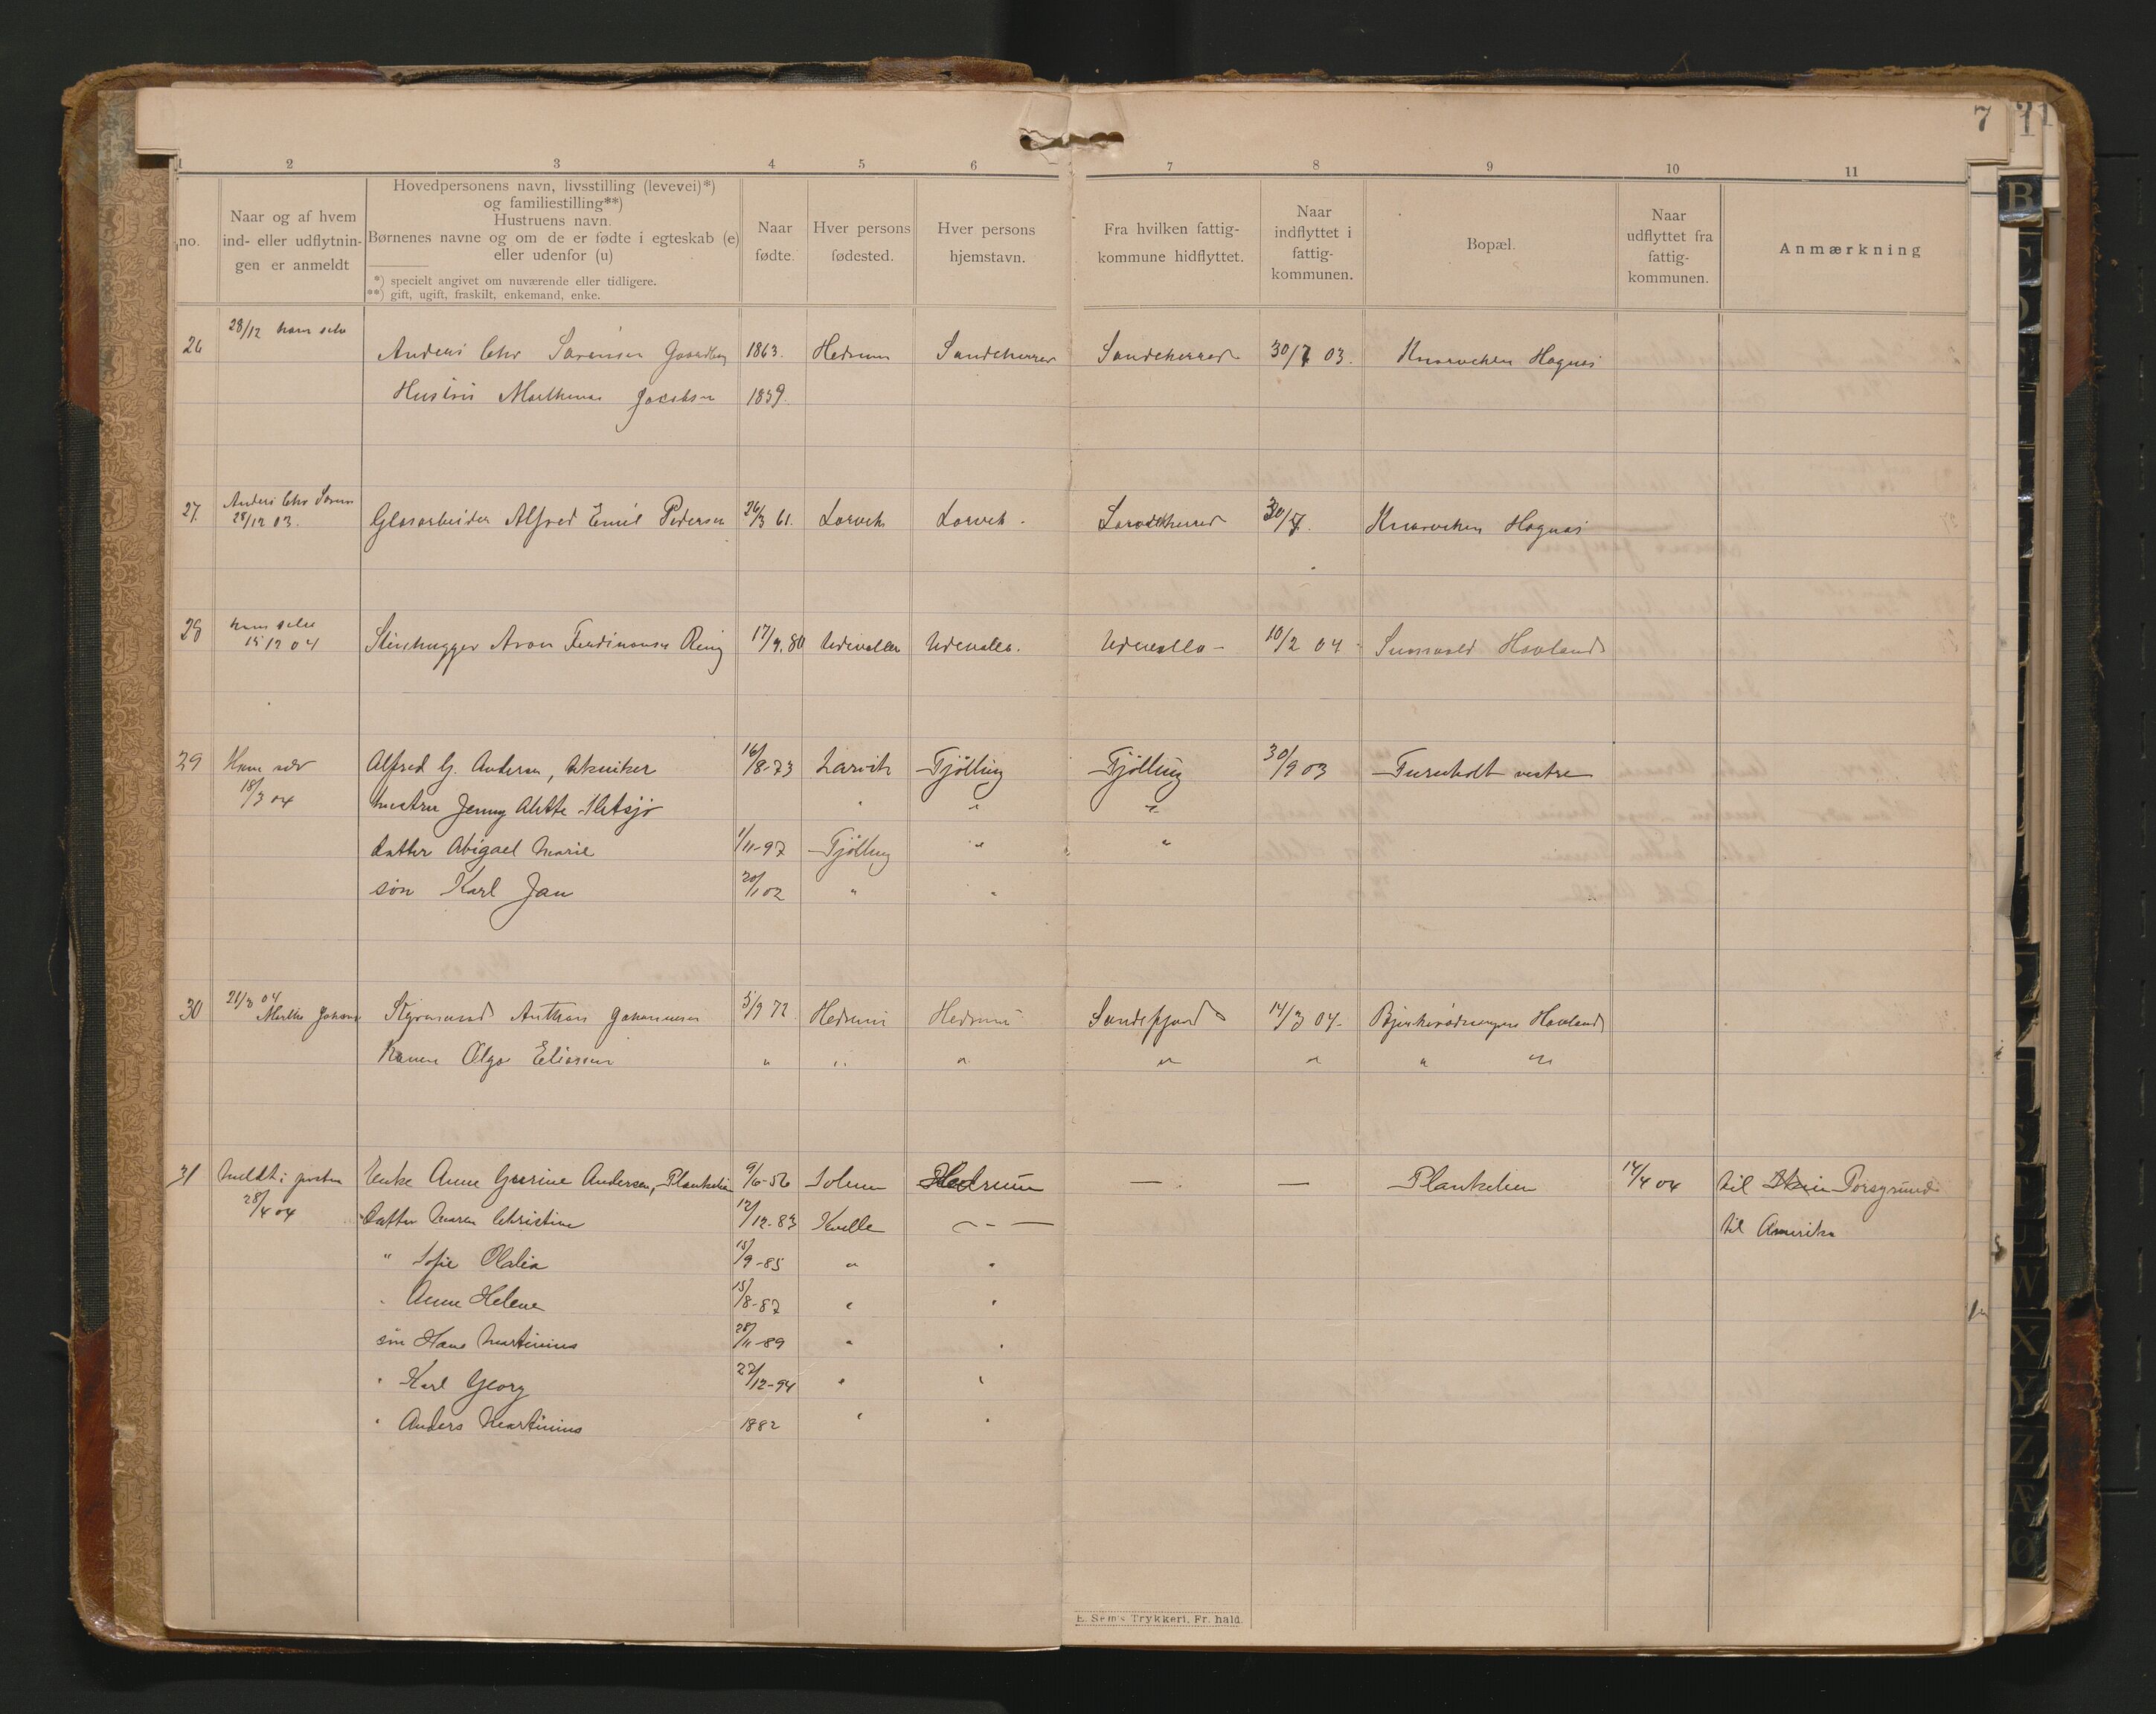 7
1 2 3 4 5 6 7 8 9 10 11
no.
Naar og af hvem
ind- eller udflytnin-
gen er anmeldt
Hovedpersonens navn, livsstilling (levevei)*)
og familiestilling**)
Hustruens navn.
Børnenes navne og om de er fødte i egteskab (e)
eller udenfor (u)
*) specielt angivet om nuværende eller tidligere.
**) gift, ugift, fraskilt, enkemand, enke.
Naar
fødte.
Hver persons
fødested.
Hver persons
hjemstavn.
Fra hvilken fattig-
kommune hidflyttet.
Naar
indflyttet i
fattig-
kommunen.
Bopæl.
Naar
udflyttet fra
fattig-
kommunen.
Anmærkning
28/12 ham selv
26 Anders Chr Sørensen 1863. Hedrum Sandeherred Sandeherred 30/7 03. Hognæs
Hustru Jacobsen 1859.
Anders Chr Søren
27. 28/12 03. Glasarbeider Alfred Emil Pedersen 26/3 61. Larvik Larvik. 30/7. Hognæs
ham selv
28 15/12 04 Stenhugger Aron Ferdinansen Ring 17/9.80 Udevalla Udevalla. Udevalla - 10/2 04 Hovland
29 Ham selv Alfred G. Andersen, tekniker 16/8-73 Larvik Tjølling Tjølling 30/9 03 Furuholt vestre
18/3 04 hustru Jenny Alette " " "
datter Abigael Marie 1/11-97 Tjølling " "
søn Karl Jan 20/1 02 " "
21/3 04
30 Styrmand Anthon Johannesen 5/9 72 Hedrum Hedrum Sandefjord 14/3 04. Hovland
Konen Olga Eliassen " " " " " " "
31 Meldt i posten Enke Anne Gurine Andersen, Plankelien 9/6-56 Solum Hedrum — — Plankelien 14/4 04 til Skien Porsgrund
28/4 04 Datter Maren Christine 12/12-83 Kvelle — - — til Amerika
" Sofie Olalia 15/9-85 " "
" Anne Helene 15/8-87 " "
søn Hans Martinius 28/11-89 " "
" Karl Georg 22/12-94 " "
" Anders Martinius 1882 " "
E. Sem's Trykkeri, Fr. hald.
B
C
D
E
P
S
U
W
X
Y
Z
Æ
Ø